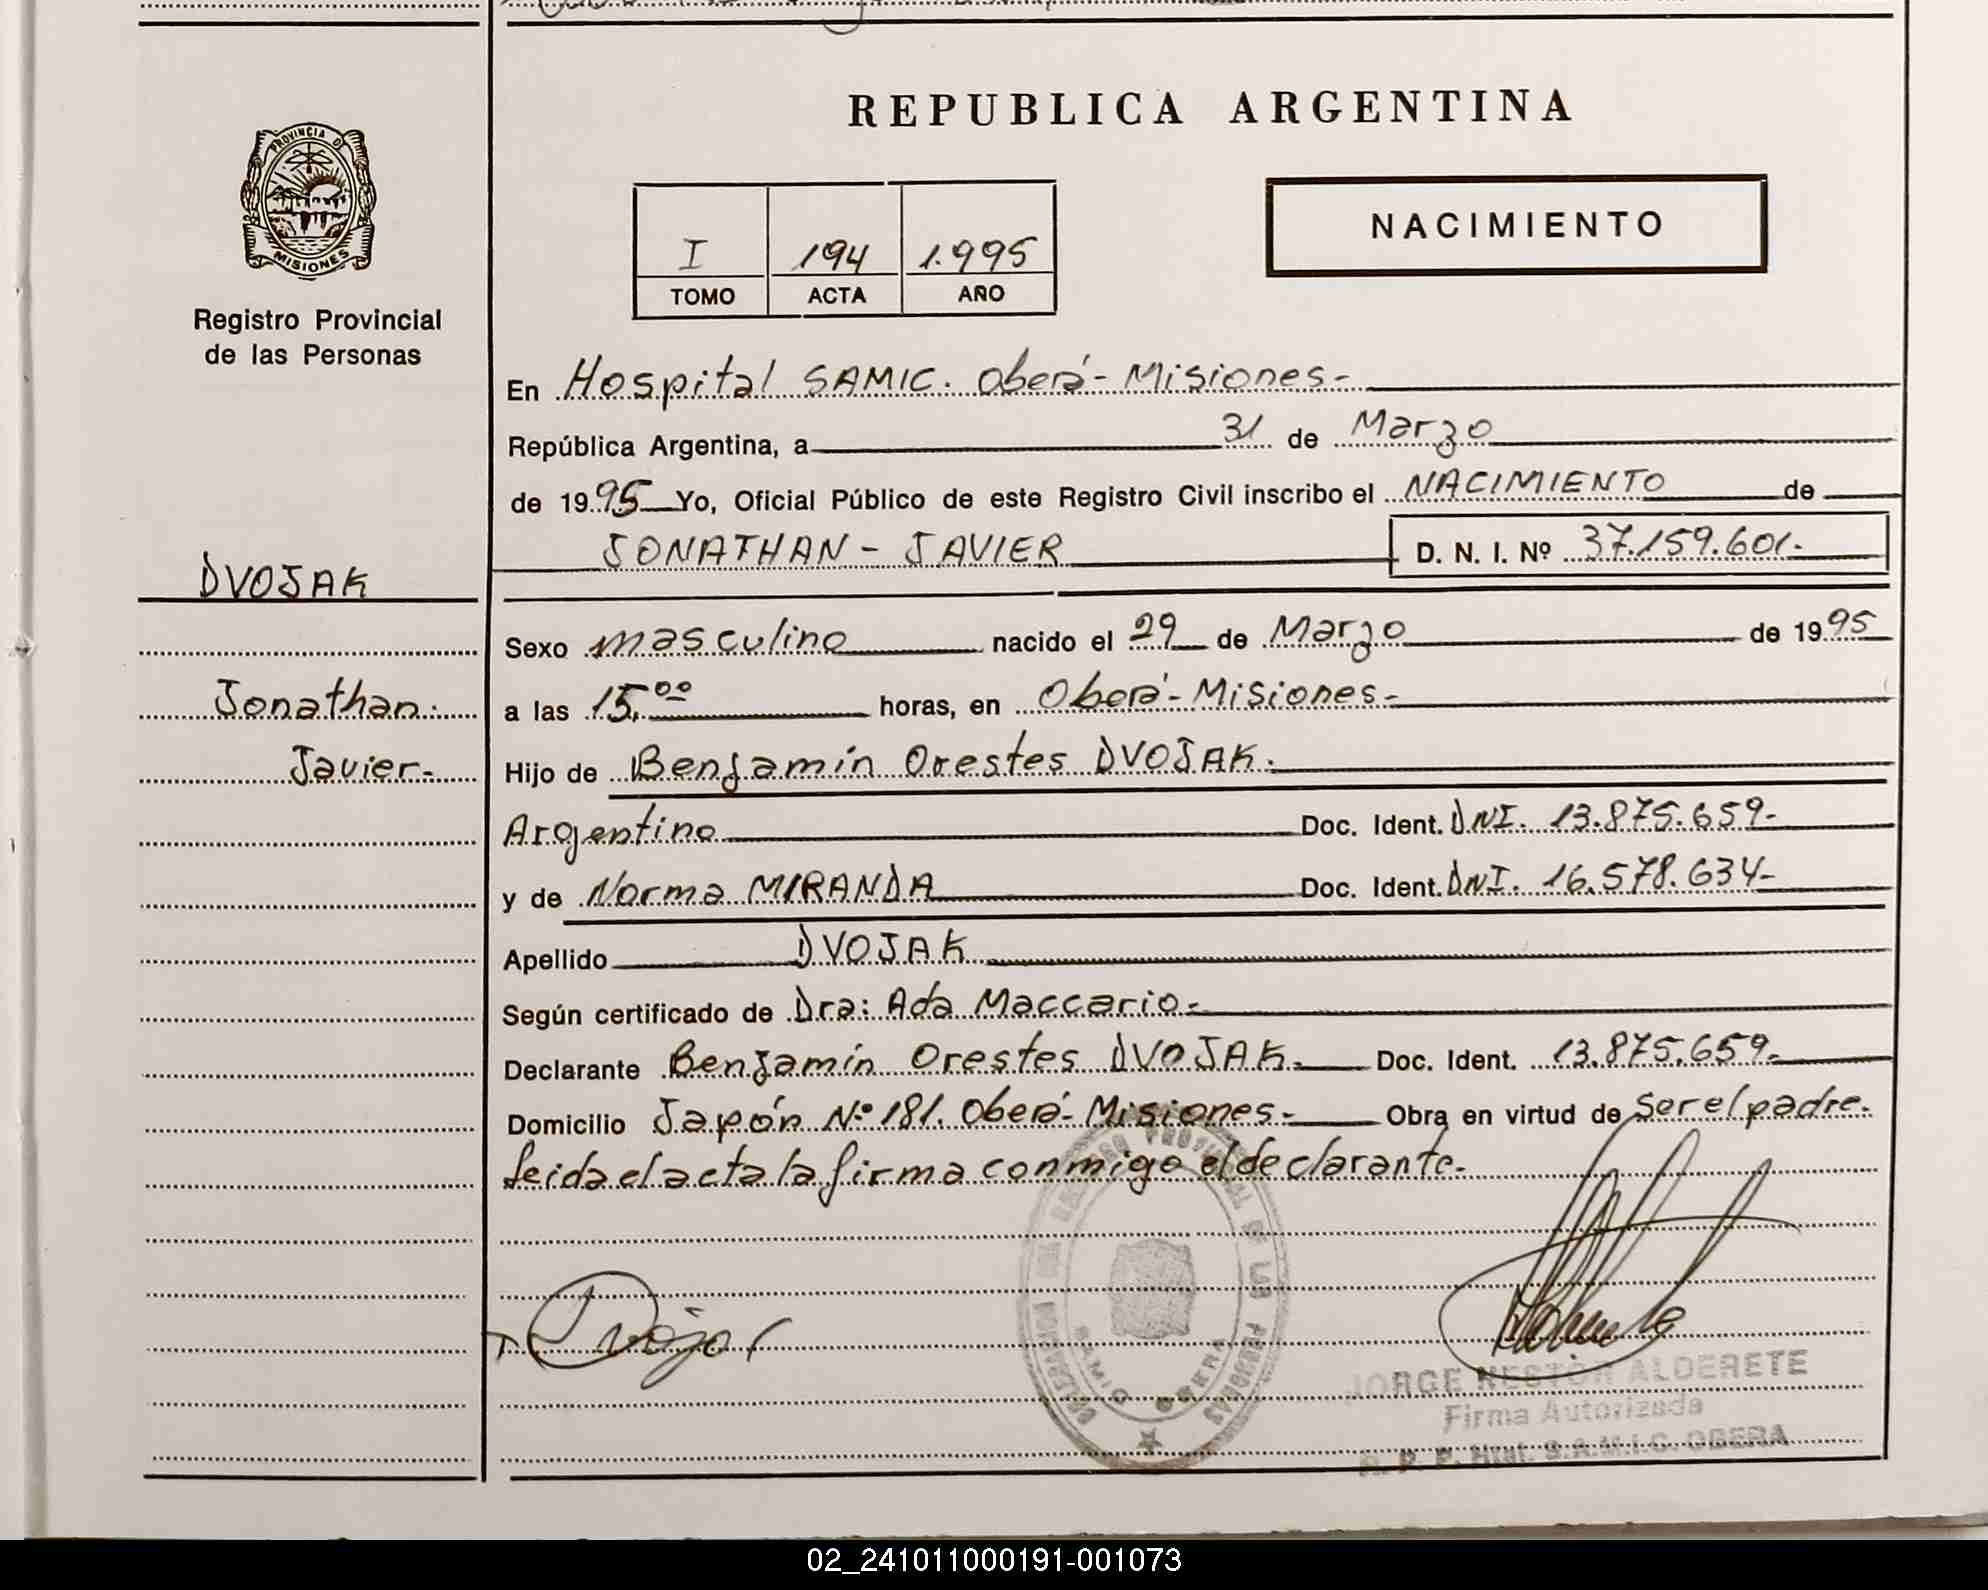 REPUBLICA ARGENTINA
PROVINCIA DE
MISIONES
Registro Provincial
de las Personas
NACIMIENTO
I 194 1.995
TOMO ACTA AÑO
En Hospital SAMIC. Oberá-Misiones-
República Argentina, a 31 de Marzo
de 1995 Yo, Oficial Público de este Registro Civil inscribo el NACIMIENTO de
JONATHAN - JAVIER D. N. I. Nº 37.159.601.-
DVOJAK
Sexo masculino nacido el 29 de Marzo de 1995
Jonathan.
a las 15,00 horas, en Oberá-Misiones-
Javier.-
Hijo de Benjamín Orestes DVOJAK.
Argentino Doc. Ident. DNI. 13.875.659-
y de Norma MIRANDA Doc. Ident. DNI. 16.578.634-
Apellido DVOJAK
Según certificado de Dra: Ada Maccario.-
Declarante Benjamín Orestes DVOJAK.- Doc. Ident. 13.875.659.-
Domicilio Japón Nº 181. Oberá-Misiones.- Obra en virtud de ser el padre.
Leida el acta la firma conmigo el declarante.-
JORGE NESTOR ALDERETE
Firma Autorizada
R. P. P. Htal. S.A.M.I.C. OBERA
REGISTRO PROVINCIAL DE LAS PERSONAS
SAMIC OBERA
02_241011000191-001073